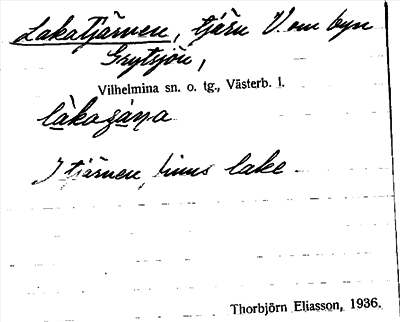 Lakatjärnen, tjärn V. om byn
Grytsjön,
Vilhelmina sn. o. tg., Västerb. l.
I tjärnen finns lake.
Thorbjörn Eliasson, 1936.